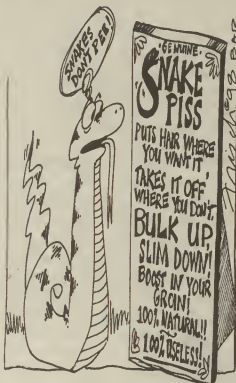 SNAKES
DON'T PEE!
GENUINE
SNAKE
PISS
PUTS HAIR WHERE
YOU WANT IT,
TAKES IT OFF
WHERE YOU DON'T,
BULK UP,
SLIM DOWN!
BOOST IN YOUR
GROIN!
100% NATURAL!!
100% USELESS!!